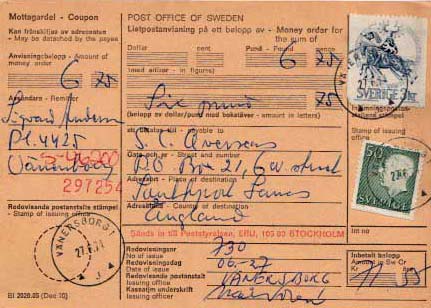 Mottagardel - Coupon
Kan frånskiljas av adressaten
- May be detached by the payee
Anvisningsbelopp - Amount of money order
6 75
Avsändare - Remitter
Sigvard
Pl. 4425
Vänersborg
297254
Redovisande postanstalts stämpel
- Stamp of issuing office
VÄNERSBORG 1
BI 2020.05 (Dec 70)
POST OFFICE OF SWEDEN
Listpostanvisning på ett belopp av - Money order for the sum of
Dollar cent Pund - Pound pence
6 75
(med siffror - in figures)
Six pund 75
(belopp av dollar/pund med bokstäver - amount in letters)
att betalas till - payable to
S. C. Overseas
Gata och nr - Street and number
P.O. Box 21, 6 street
Adressort - Place of destination
Southport Lancs
Adressland - Country of destination
England
Sänds in till Poststyrelsen, ERU, 105 03 STOCKHOLM
Redovisningsnr
No of issue
730
Redovisningsdag
Date of issue
06-27
Redovisande postanstalt
Issuing office
VÄNERSBORG
Kassatjm underskrift
Issuing officer
SVERIGE
Stamp of issuing office
50
SVERIGE
Inbetalt belopp
Amount in Sw Cr
Kr
77 55